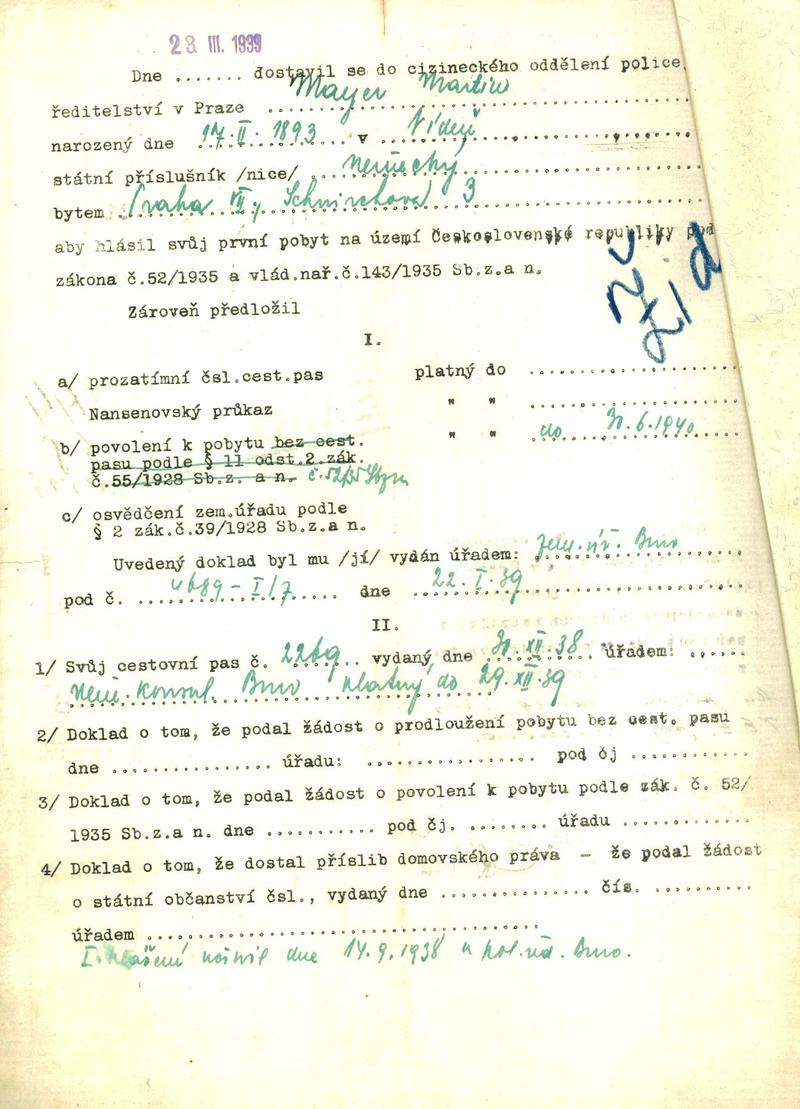 23 III. 1939
Dne ....... dostavil se do cizineckého oddělení police.
ředitelství v Praze Mayer Martin
narozený dne 17.II.1893 v Vídeň
státní příslušník /nice/ německý
bytem Praha VII., Schnirchova 3
aby hlásil svůj první pobyt na území Československé republiky pod
zákona č.52/1935 a vlád.nař.č.143/1935 Sb.z.a n.
Žid
Zároveň předložil
I.
a/ prozatímní čsl.cest.pas platný do ..........
Nansenovský průkaz " " ..........
b/ povolení k pobytu bez cest. " " do 30.6.1940
pasu podle § 11 odst.2 zák.
č.55/1928 Sb.z. a n. č.52/35 Sbzn
c/ osvědčení zem.úřadu podle
§ 2 zák.č.39/1928 Sb.z.a n.
Uvedený doklad byl mu /jí/ vydán úřadem: Brno
pod č. 4689-I/7 dne 22.I.39
II.
1/ Svůj cestovní pas č. 2269 vydaný dne 30.XII.38 úřadem: ......
Něm. konsul. Brno platný do 29.XII.39
2/ Doklad o tom, že podal žádost o prodloužení pobytu bez cest. pasu
dne ............... úřadu: ................. pod čj ............
3/ Doklad o tom, že podal žádost o povolení k pobytu podle zák. č. 52/
1935 Sb.z.a n. dne .......... pod čj. ........ úřadu ............
4/ Doklad o tom, že dostal příslib domovského práva - že podal žádost
o státní občanství čsl., vydaný dne ............... čís. ..........
úřadem .......................................
I. hlášení učinil dne 14.9.1938 u pol.úd. Brno.